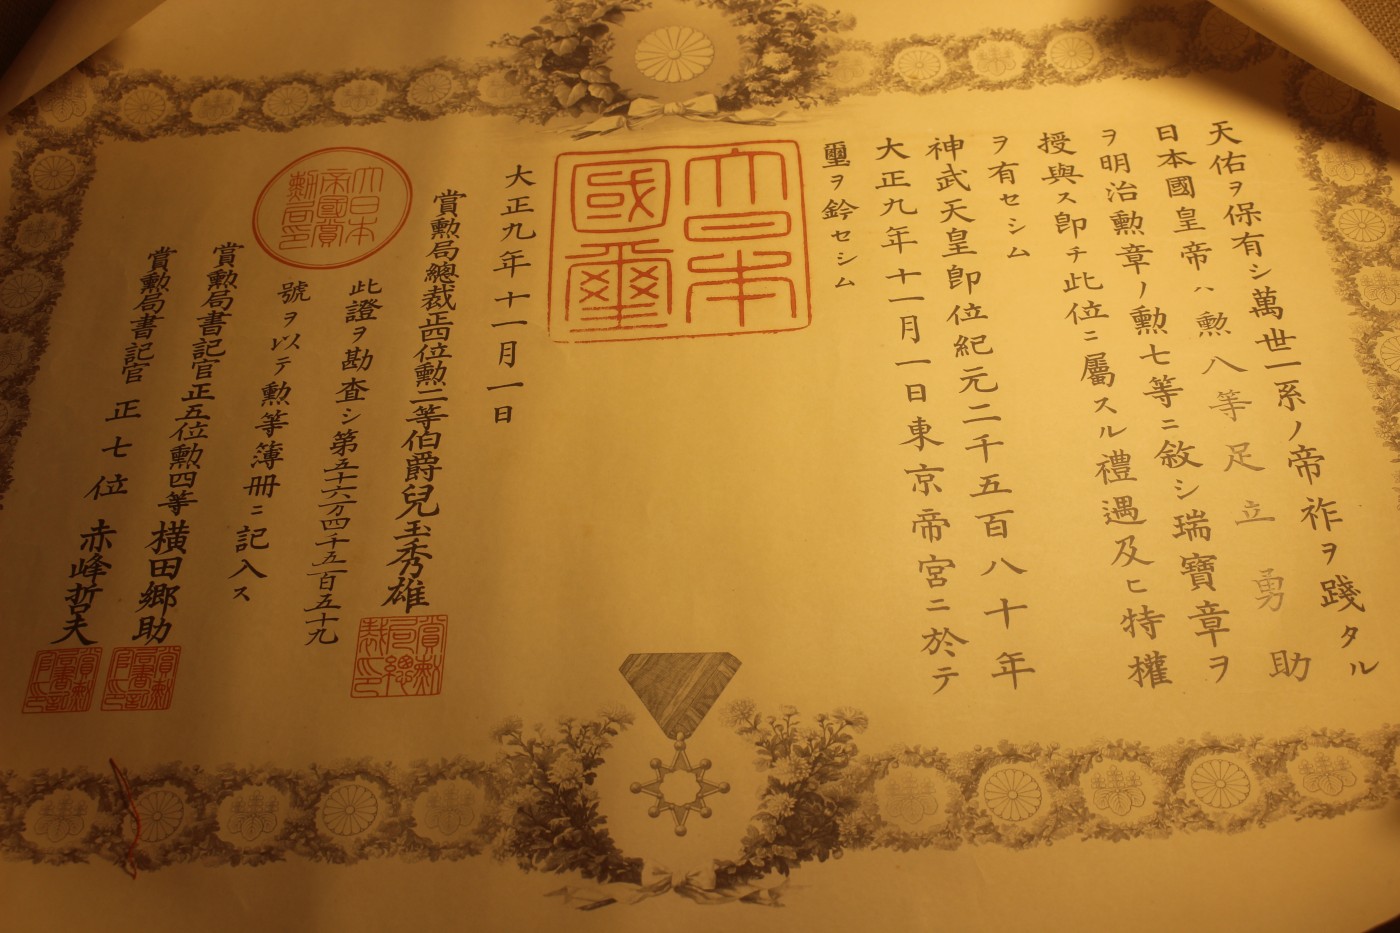 天佑ヲ保有シ萬世一系ノ帝祚ヲ踐タル
日本國皇帝ハ勲八等足立勇助
ヲ明治勲章ノ勲七等ニ敘シ瑞寶章ヲ
授與ス即チ此位ニ屬スル禮遇及ヒ特權
ヲ有セシム
神武天皇即位紀元二千五百八十年
大正九年十一月一日東京帝宮ニ於テ
璽ヲ鈐セシム
大日本
國璽
大正九年十一月一日
賞勲局總裁正四位勲二等伯爵兒玉秀雄
賞勲
局總
裁印
此證ヲ勘査シ第五十六万四千五百五十九
號ヲ以テ勲等簿冊ニ記入ス
大日本
帝國賞
勲局印
賞勲局書記官正五位勲四等横田郷助
賞勲局書記官正七位赤峰哲夫